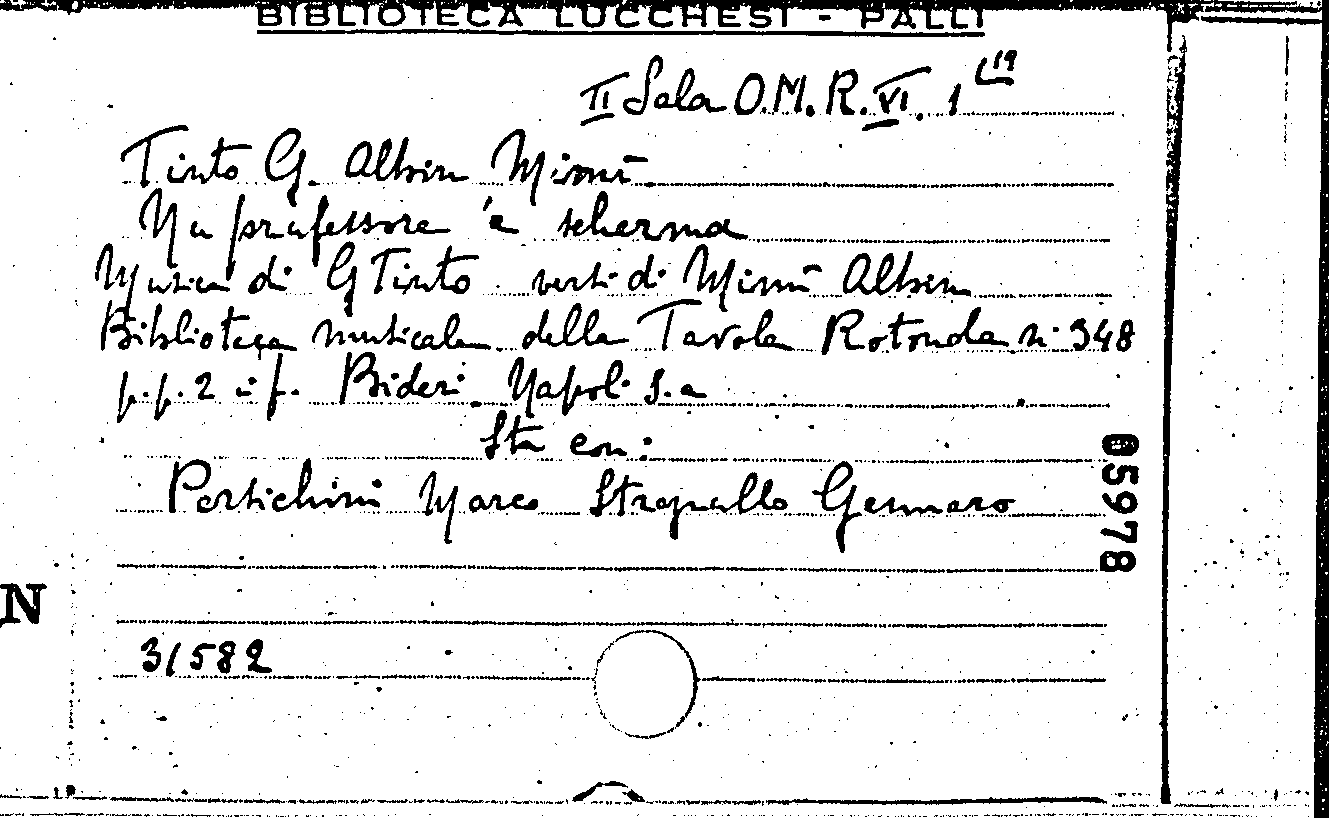 BIBLIOTECA LUCCHESI - PALLI
II Sala O.M.R. VI. 1 19
Tinto G. Albin Mimì
Nu prufessore 'e scherma
Musica di G Tinto versi di Mimì Albin
Biblioteca musicale della Tavola Rotonda n. 348
p.p. 2 i f. Bideri Napoli s.a
Sta con:
Portichini Marco Strapallo Gennaro
05978
N
31582